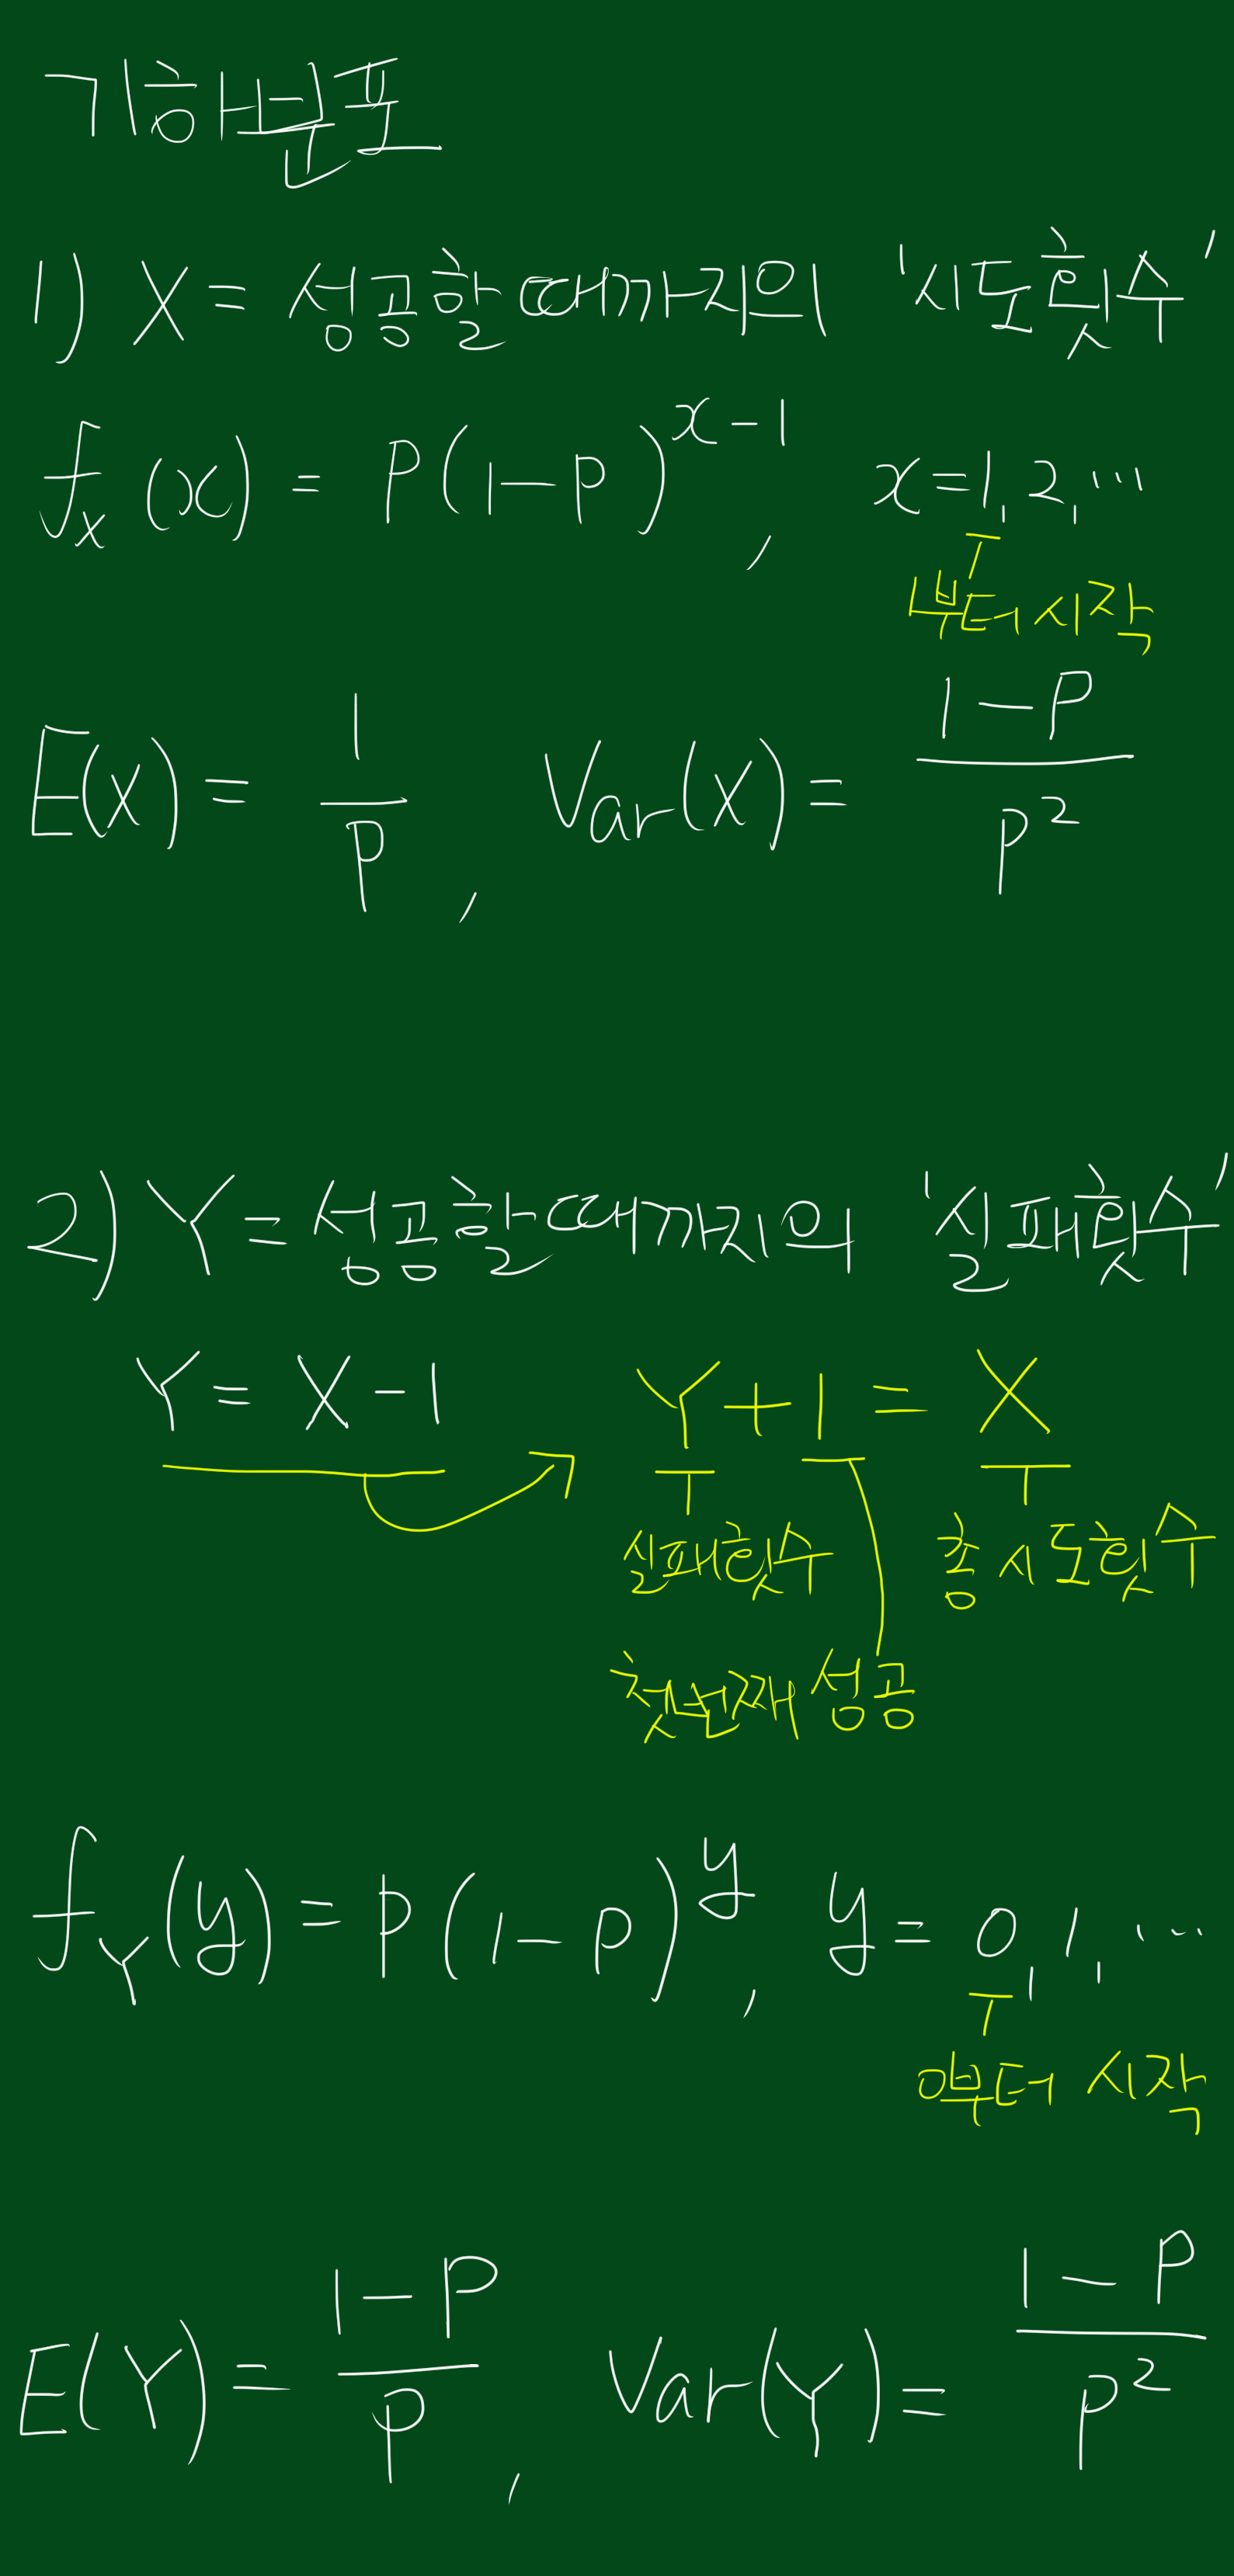 기하분포
1) X = 성공할때까지의 '시도횟수'
f_X(x) = P(1-p)^{x-1}, x=1,2,⋯
1부터 시작
E(X) = 1/P, Var(X) = (1-P)/P^2
2) Y = 성공할때까지의 '실패횟수'
Y = X-1 Y+1 = X
실패횟수 총 시도횟수
첫번째 성공
f_Y(y) = P(1-p)^y, y = 0,1,⋯
0부터 시작
E(Y) = (1-P)/P, Var(Y) = (1-P)/P^2